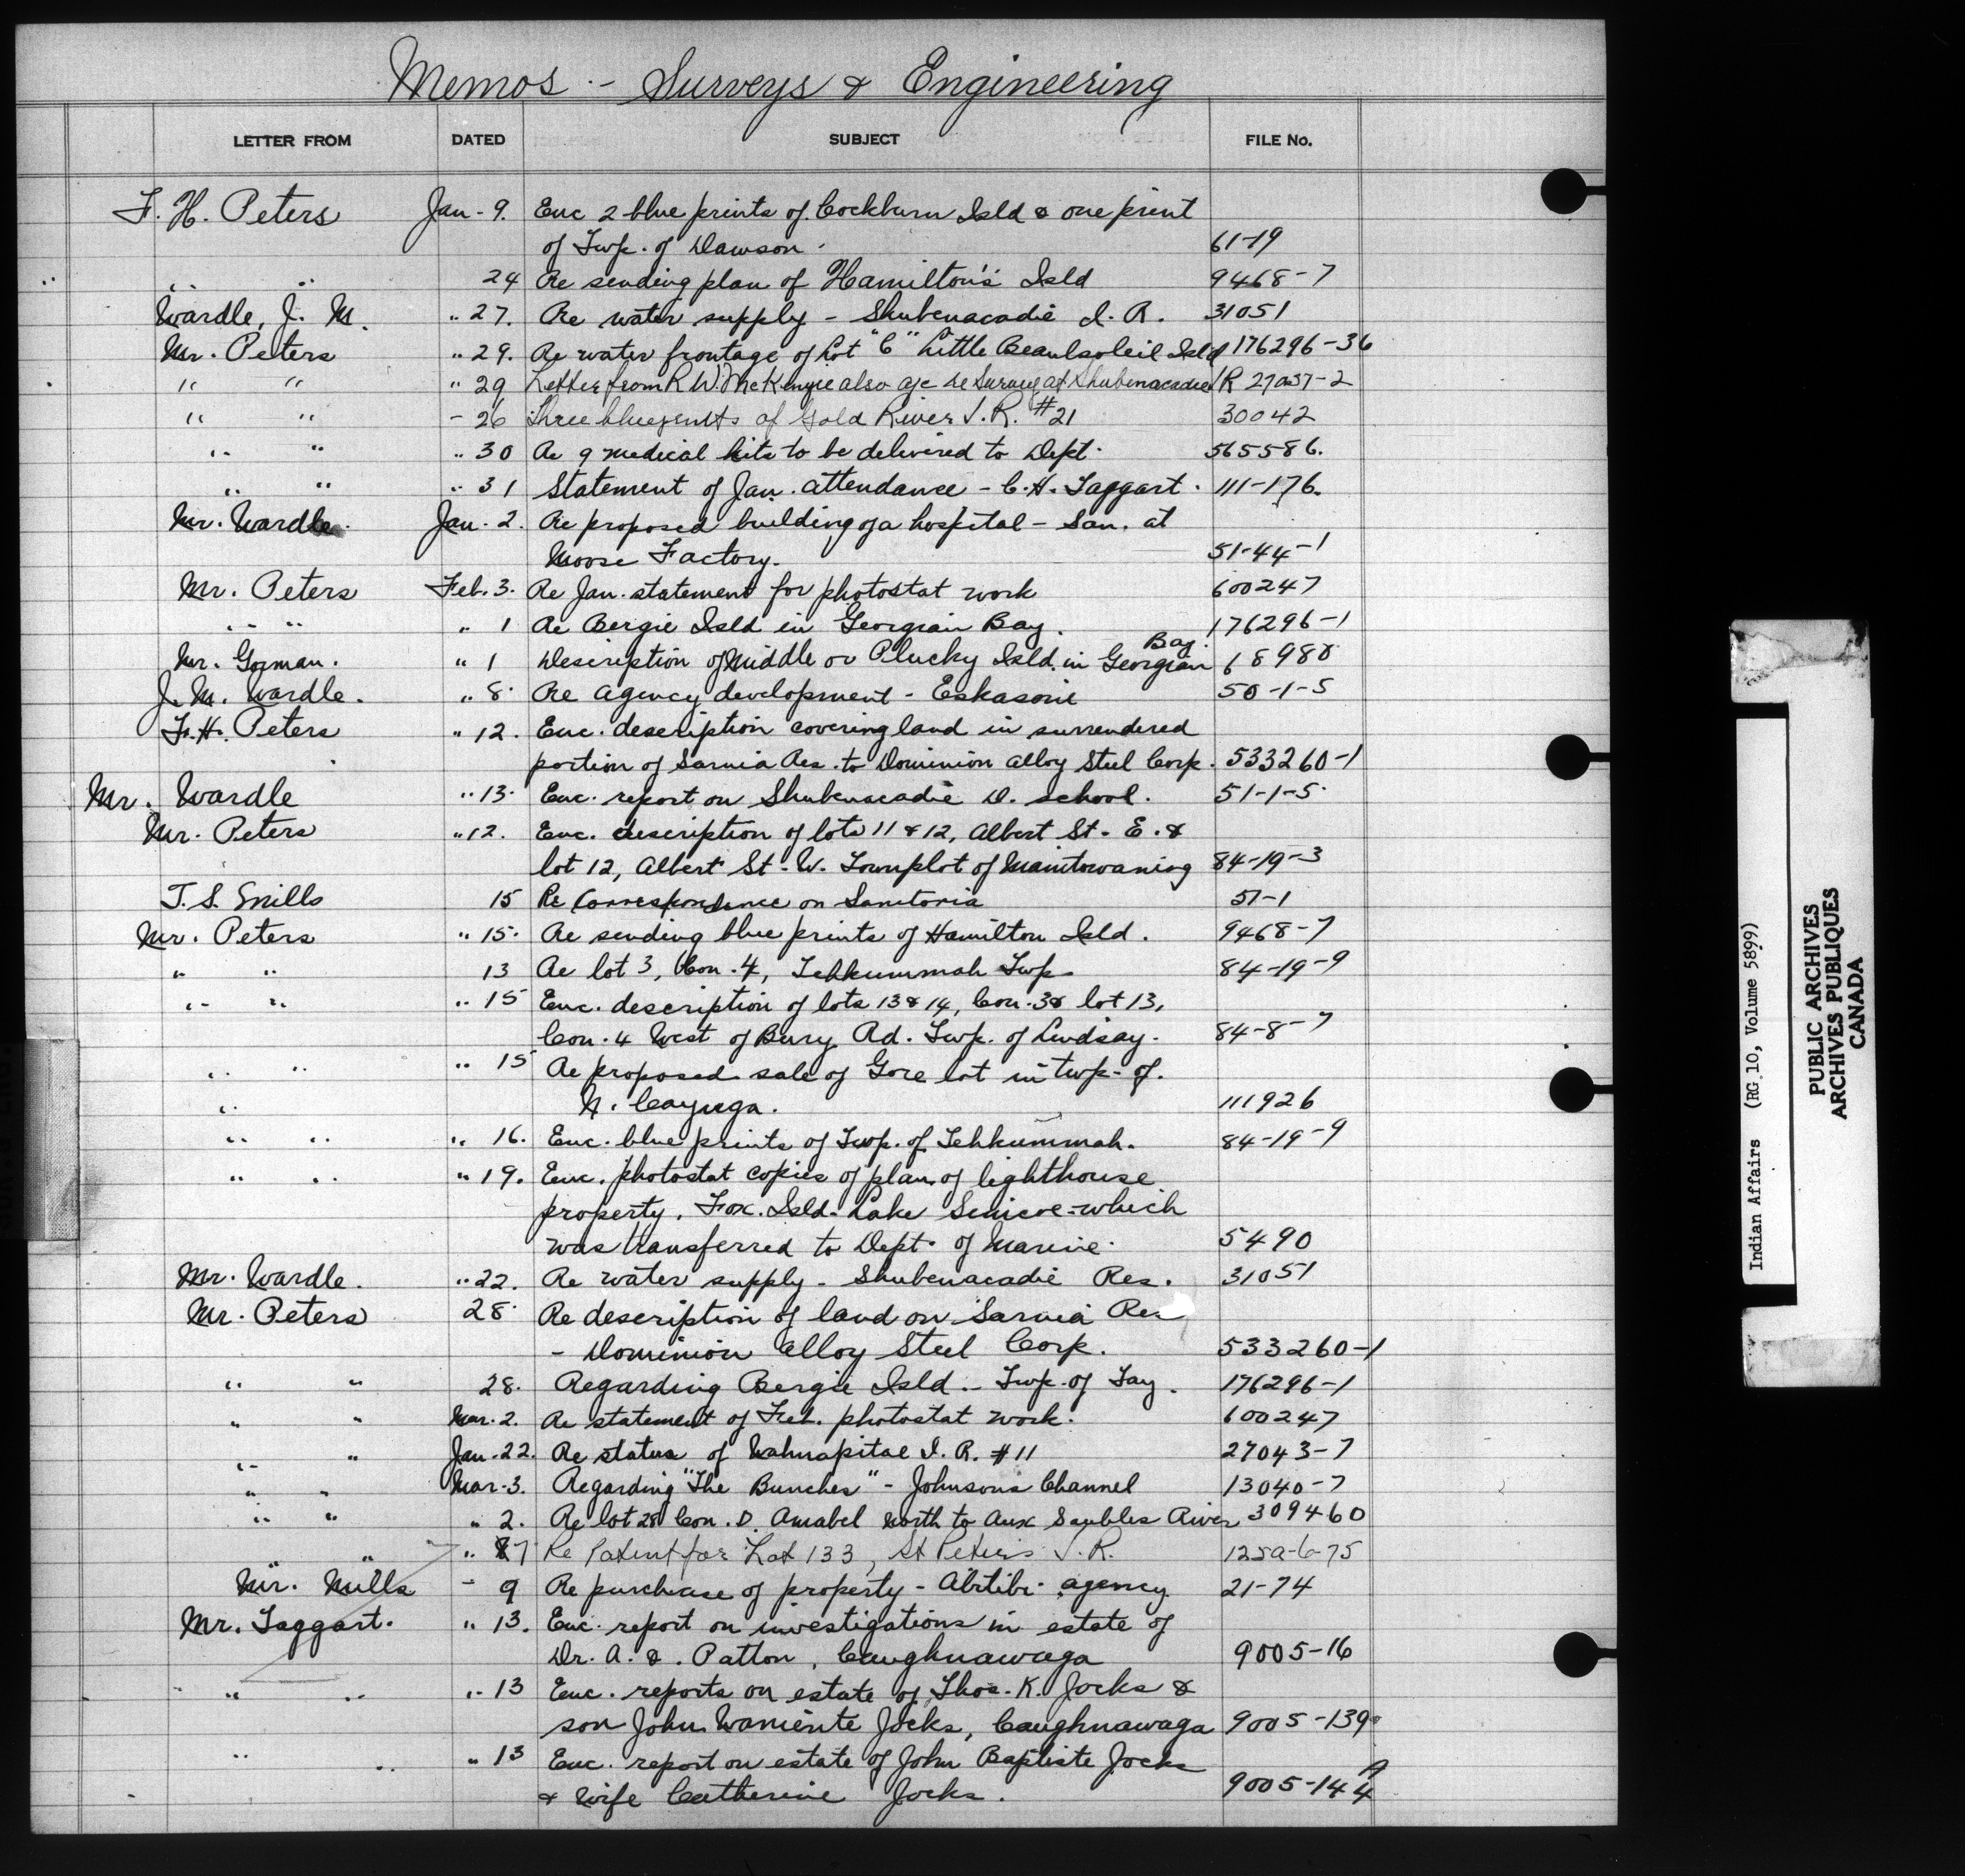 Memos - Surveys & Engineering
LETTER FROM DATED SUBJECT FILE No.
F. H. Peters Jan - 9. Enc 2 blue prints of Cockburn Isld & one print
of Twp. of Dawson. 61-19
" " 24 Re sending plan of Hamilton's Isld 9468-7
Wardle, J. M. " 27. Re water supply - Shubenacadie I. R. 31051
Mr. Peters " 29. Re water frontage of Lot "C" Little Beausoleil Isld 176296-36
" " " 29 Letter from R W. McKenzie also a/c re Survey at Shubenacadie IR 27037-2
" " - 26 Three blueprints of Gold River I. R. #21 30042
" " " 30 Re 9 medical kits to be delivered to Dept. 565586.
" " " 31 Statement of Jan. attendance - C. H. Taggart. 111-176.
Mr. Wardle. Jan. 2. Re proposed building of a hospital - San. at
Moose Factory. 51-44-1
Mr. Peters Feb. 3. Re Jan. statement for photostat work 600247
" " " 1 Re Bergie Isld in Georgian Bay. 176296-1
Mr. Gorman. " 1 Description of Middle or Plucky Isld. in Georgian Bay. 68980
J. M. Wardle. " 8. Re agency development - Eskasoni 50-1-5
F. H. Peters " 12. Enc. description covering land in surrendered
portion of Sarnia Res. to Dominion Alloy Steel Corp. 533260-1
Mr. Wardle " 13. Enc. report on Shubenacadie D. school. 51-1-5.
Mr. Peters " 12. Enc. description of lots 11 & 12, Albert St. E. &
lot 12, Albert St. W. Townplot of Manitowaning 84-19-3
T. S. Mills 15 Re Correspondence on Sanitoria 51-1
Mr. Peters " 15. Re sending blue prints of Hamilton Isld. 9468-7
" " 13 Re lot 3, Con. 4, Tehkummah Twp. 84-19-9
" " " 15 Enc. description of lots 13 & 14, Con. 3 & lot 13,
Con. 4 West of Bury Rd. Twp. of Lindsay. 84-8-7
" " " 15 Re proposed sale of Gore lot in Twp. of.
" N. Cayuga. 111926
" " " 16. Enc. blue prints of Twp. of Tehkummah. 84-19-9
" " " 19. Enc. photostat copies of plan of lighthouse
property, Fox. Isld. Lake Simcoe - which
was transferred to Dept. of Marine. 5490
Mr. Wardle. " 22. Re water supply - Shubenacadie Res. 31051
Mr. Peters 28. Re description of land on Sarnia Res
- Dominion Alloy Steel Corp. 533260-1
" " 28. Regarding Bergie Isld. - Twp. of Tay. 176296-1
" " Mar. 2. Re statement of Feb. photostat work. 600247
" " Jan. 22. Re status of Wahnapitae I. R. #11 27043-7
" " Mar. 3. Regarding "The Bunches" - Johnsons Channel 13040-7
" " " 2. Re lot 28 Con. D. Amabel North to Aux Saubles River 309460
" " " 7 Re Patent for Lot 133, St Peters I. R. 125a-6-75
Mr. Mills - 9 Re purchase of property - Abitibi agency 21-74
Mr. Taggart. " 13. Enc. report on investigations in estate of
Dr. A. &. Patton, Caughnawaga 9005-16
" " " 13 Enc. reports on estate of Thos. K. Jocks &
son John Waniente Jocks, Caughnawaga 9005-139
" " " 13 Enc. report on estate of John Baptiste Jocks
& Wife Catherine Jocks. 9005-144 A
Indian Affairs (RG 10, Volume 5899)
PUBLIC ARCHIVES
ARCHIVES PUBLIQUES
CANADA